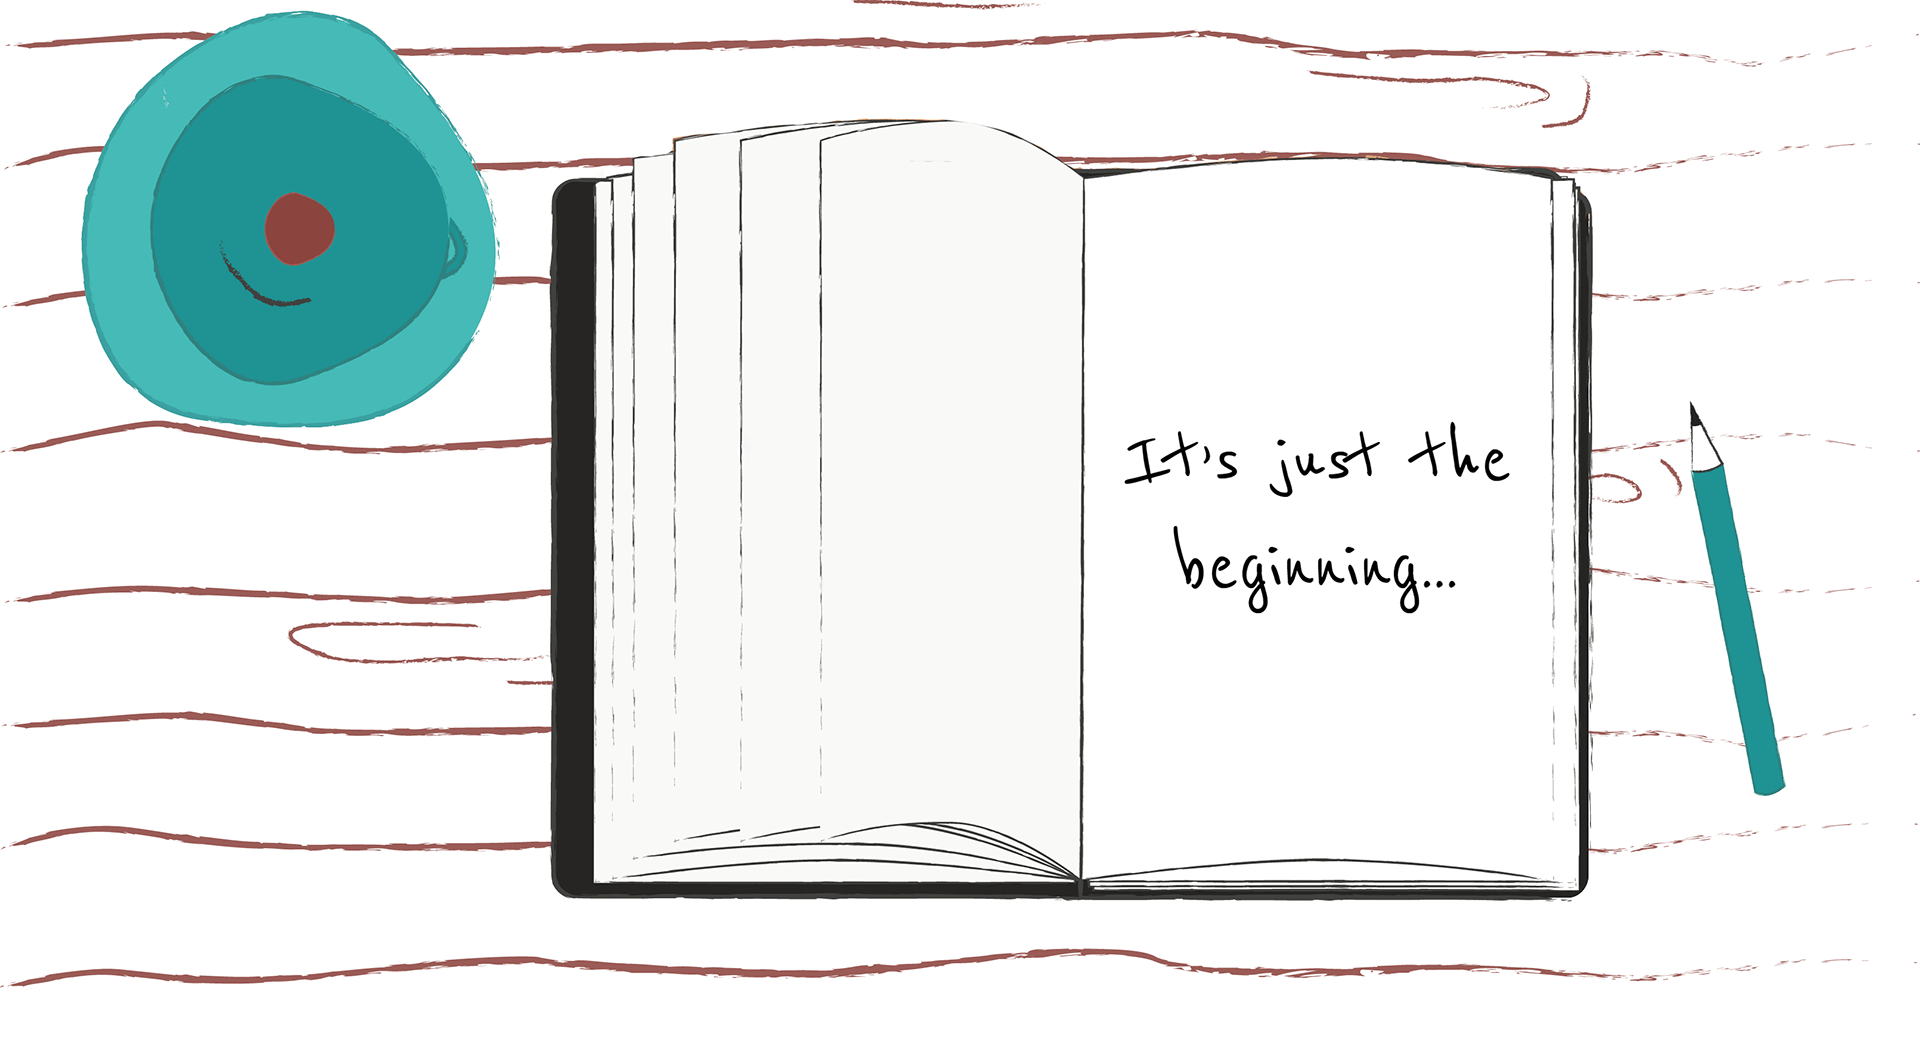 It's just the
beginning...